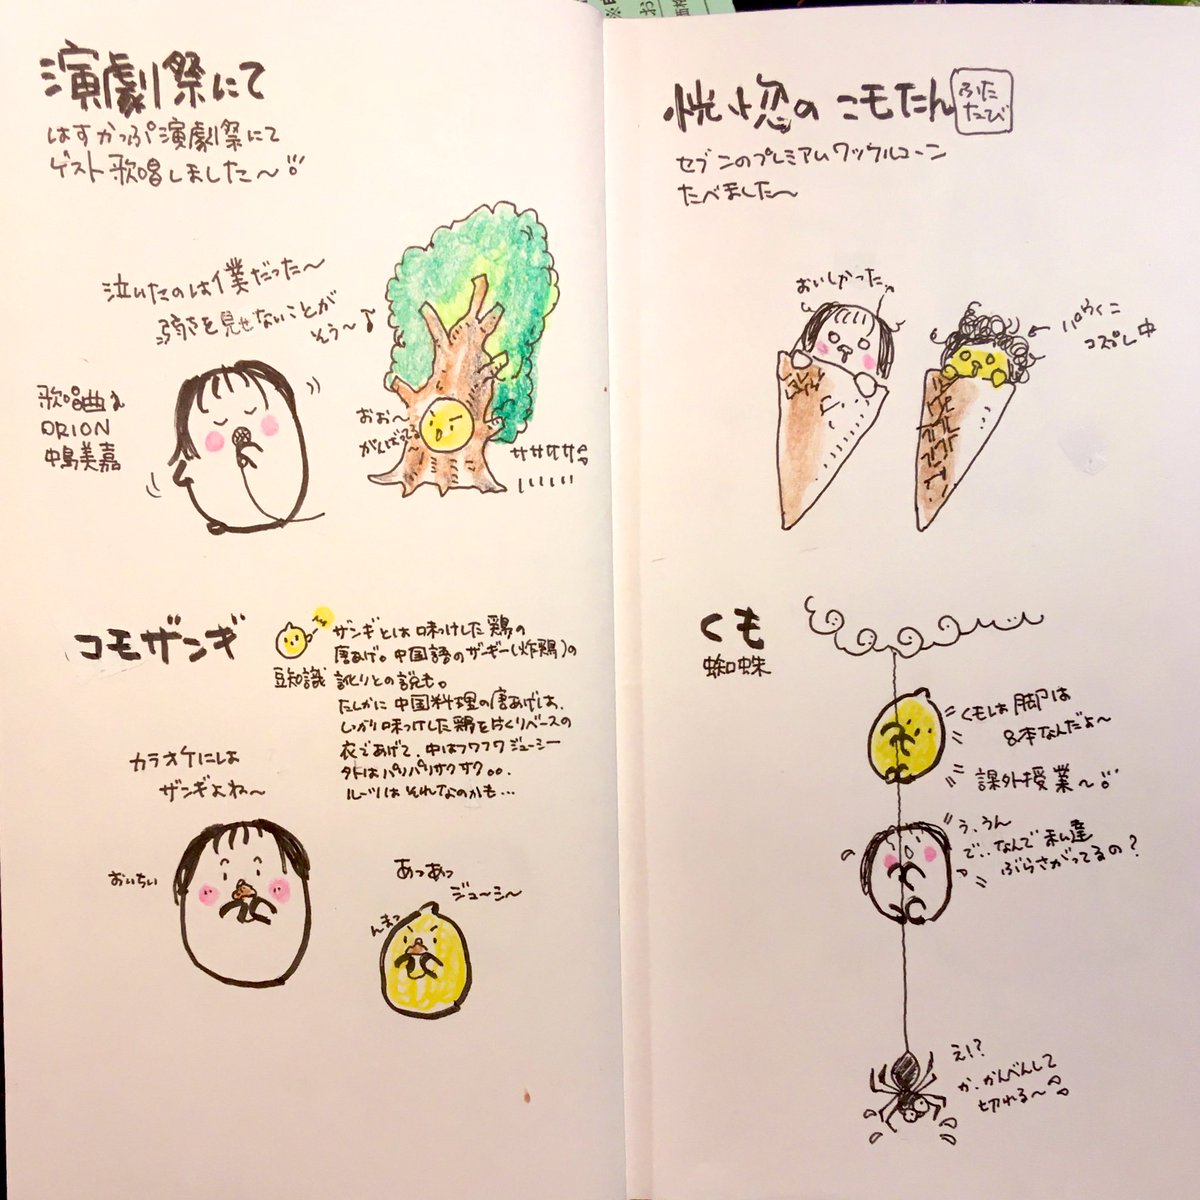 演劇祭にて
はすかっぷ演劇祭にて
ゲスト歌唱しました〜
泣いたのは僕だった〜
弱さを見せないことが
そう〜♪
歌唱曲
ORION
中島美嘉
おぉ〜
がんばってる〜
ササササ
コモザンギ
豆知識
ザンギとは味つけした鶏の
唐あげ。中国語のザーギー(炸鶏)の
訛りとの説も。
たしかに中国料理の唐あげは、
しっかり味つけした鶏を片くりベースの
衣であげて、中はフワフワジューシー
外はパリパリサクサク。。
ルーツはそれなのかも…
カラオケには
ザンギよね〜
おいちい
あつあつ
ジューシ〜
んまっ
恍惚のコモたん
ふた
たび
セブンのプレミアムワッフルコーン
たべました〜
おいしかった
パやくこ
コスプレ中
くも
蜘蛛
くもは脚は
8本なんだよ〜
課外授業〜
う、うん
で、なんで私達
ぶらさがってるの?
えー?
か、かんべんして
切れる〜